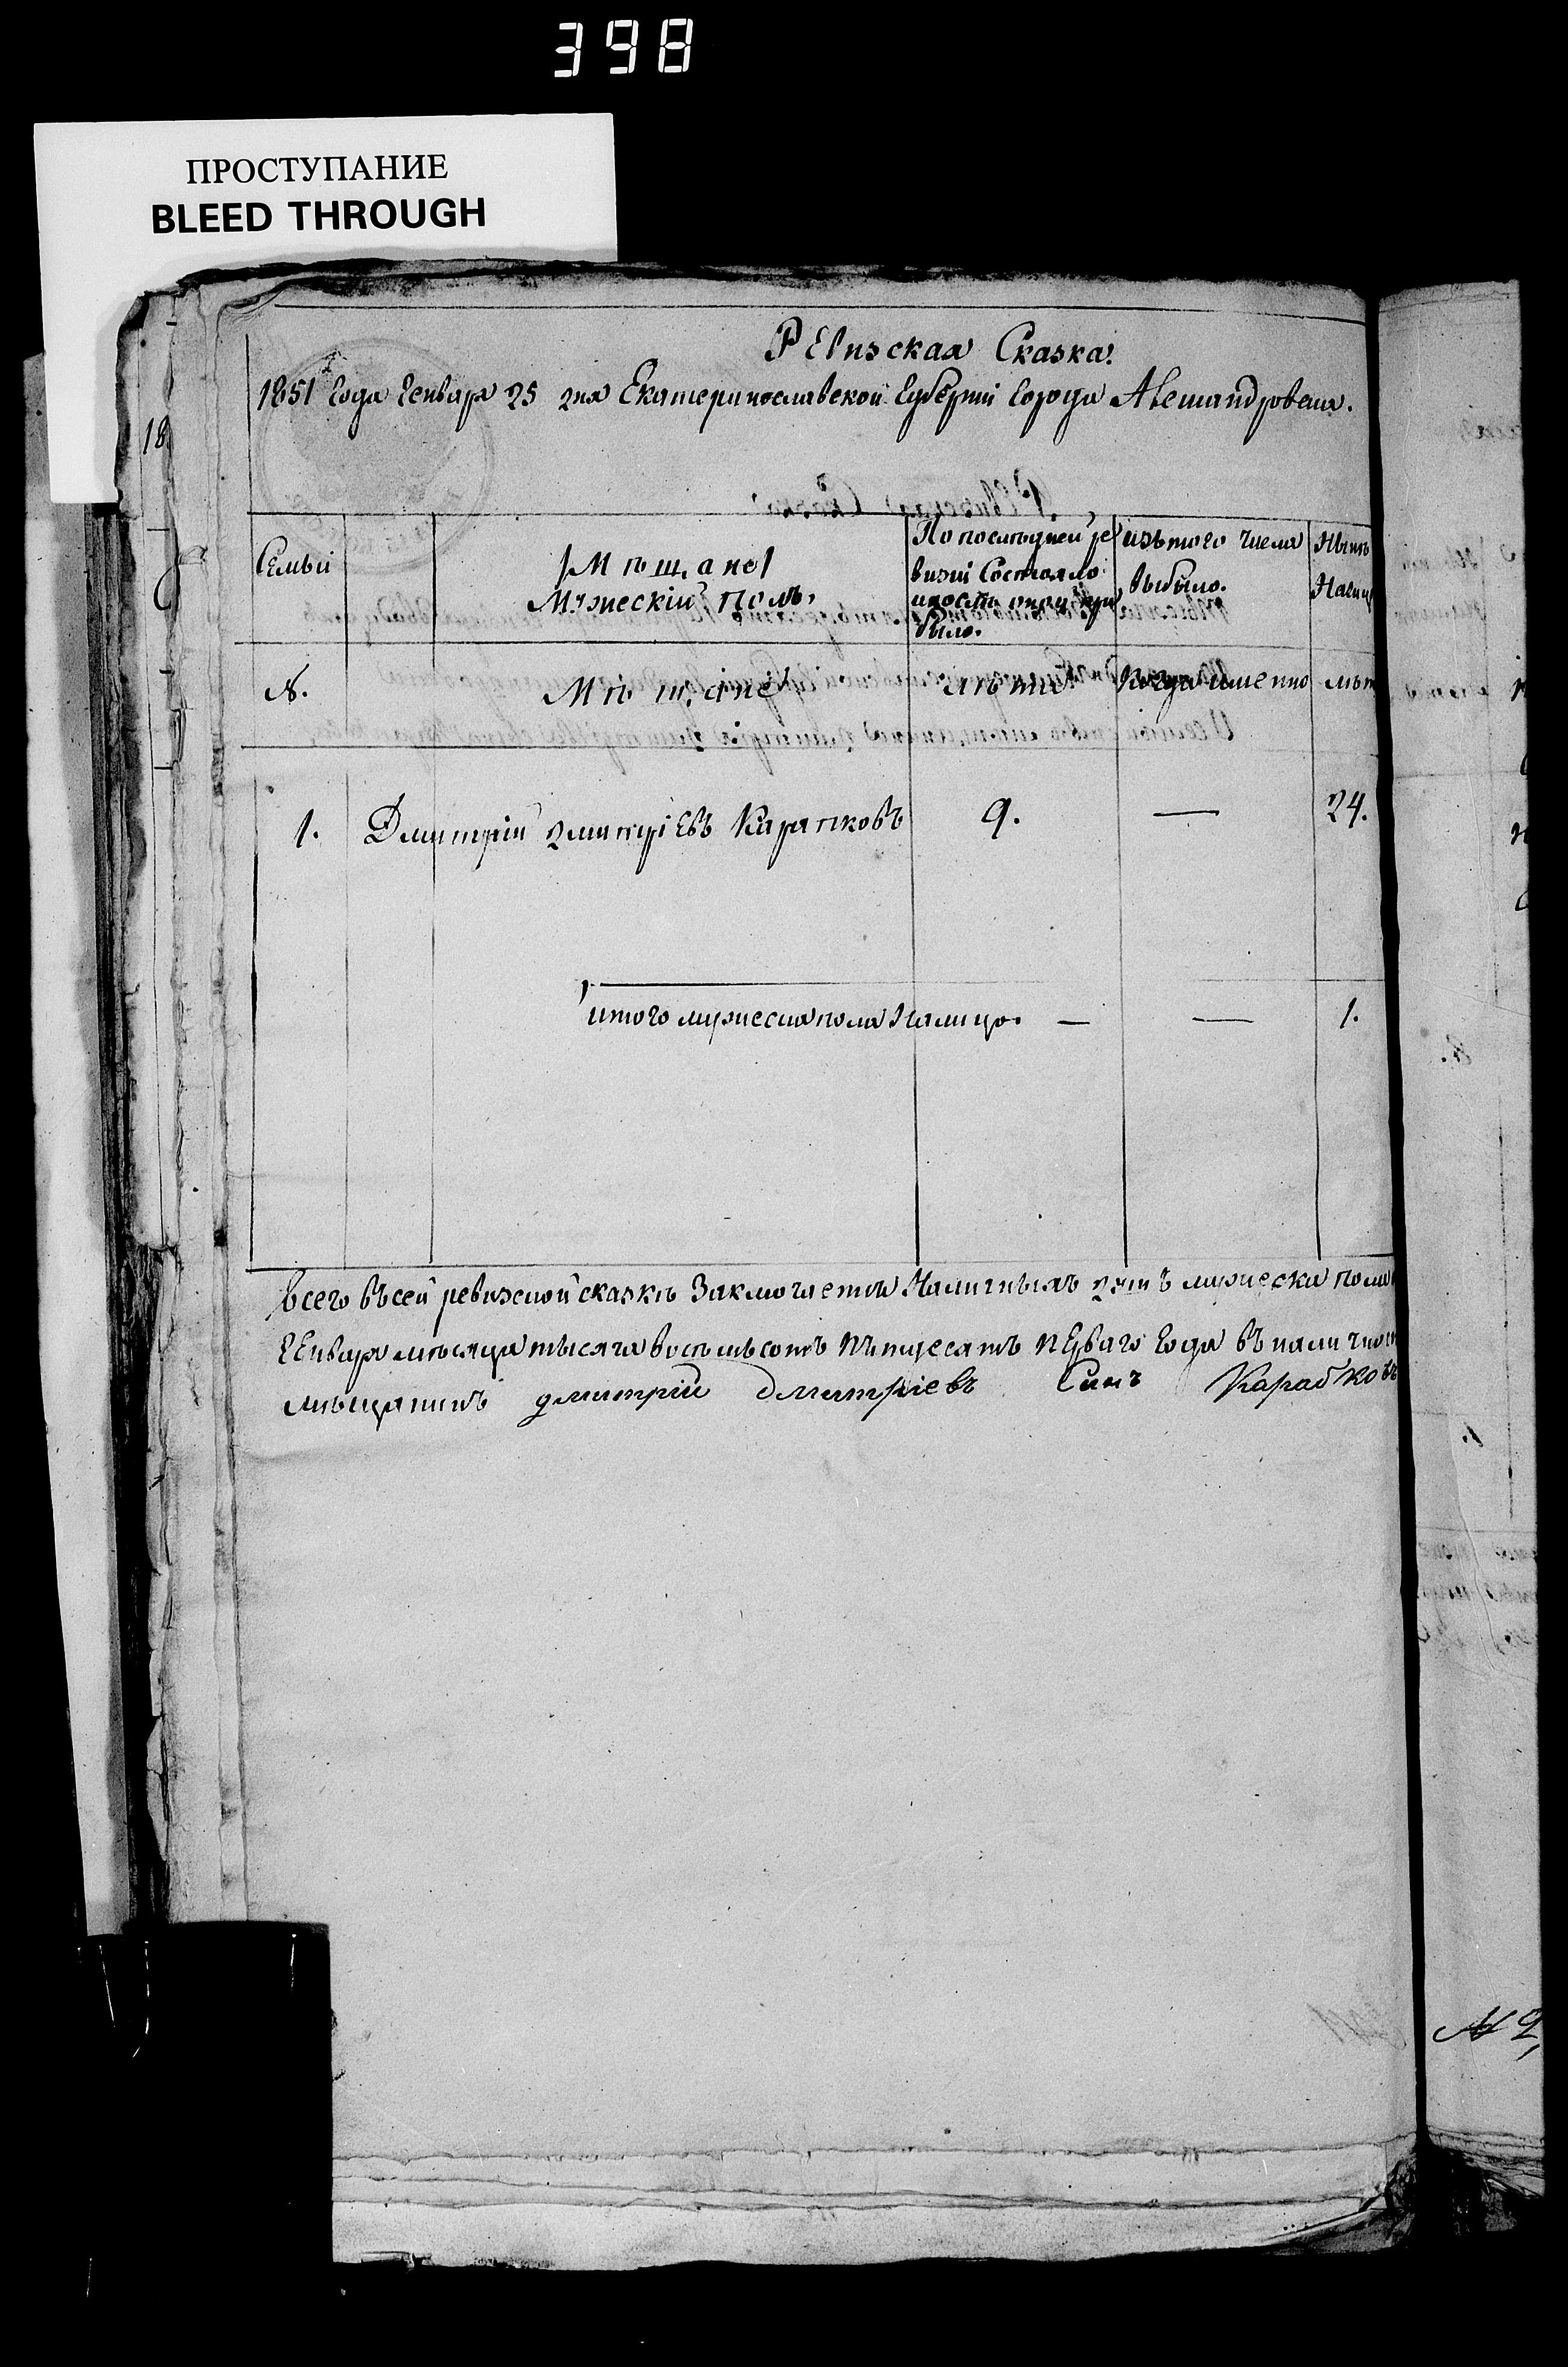 398
ПРОСТУПАНИЕ
BLEED THROUGH
18
Ревизская Сказка.
1851 Года Генваря 25 дня Екатеринославской Губерніи Города Александровска.
Семьи
Мѣщане
Мужескій полъ.
По последней ре
визіи Состояло
и после оной при
было.
изътого числа
выбыло.
Нынѣ
Налиц
№.
Мѣщане
лѣта
Когда именно
лѣт
1.
Дмитрій дмитріевъ Карапковъ
9.
—
24.
итого мужеска пола Налицо. —
—
1.
всего въсей ревизской сказкѣ Заключается Наличныхъ душъ мужеска пола
Генваря мѣсяца тысяча восемьсотъ пятдесятъ перваго Года въ налично
мѣщанинъ дмитрій дмитріевъ Синъ Карабковъ
№ 2,